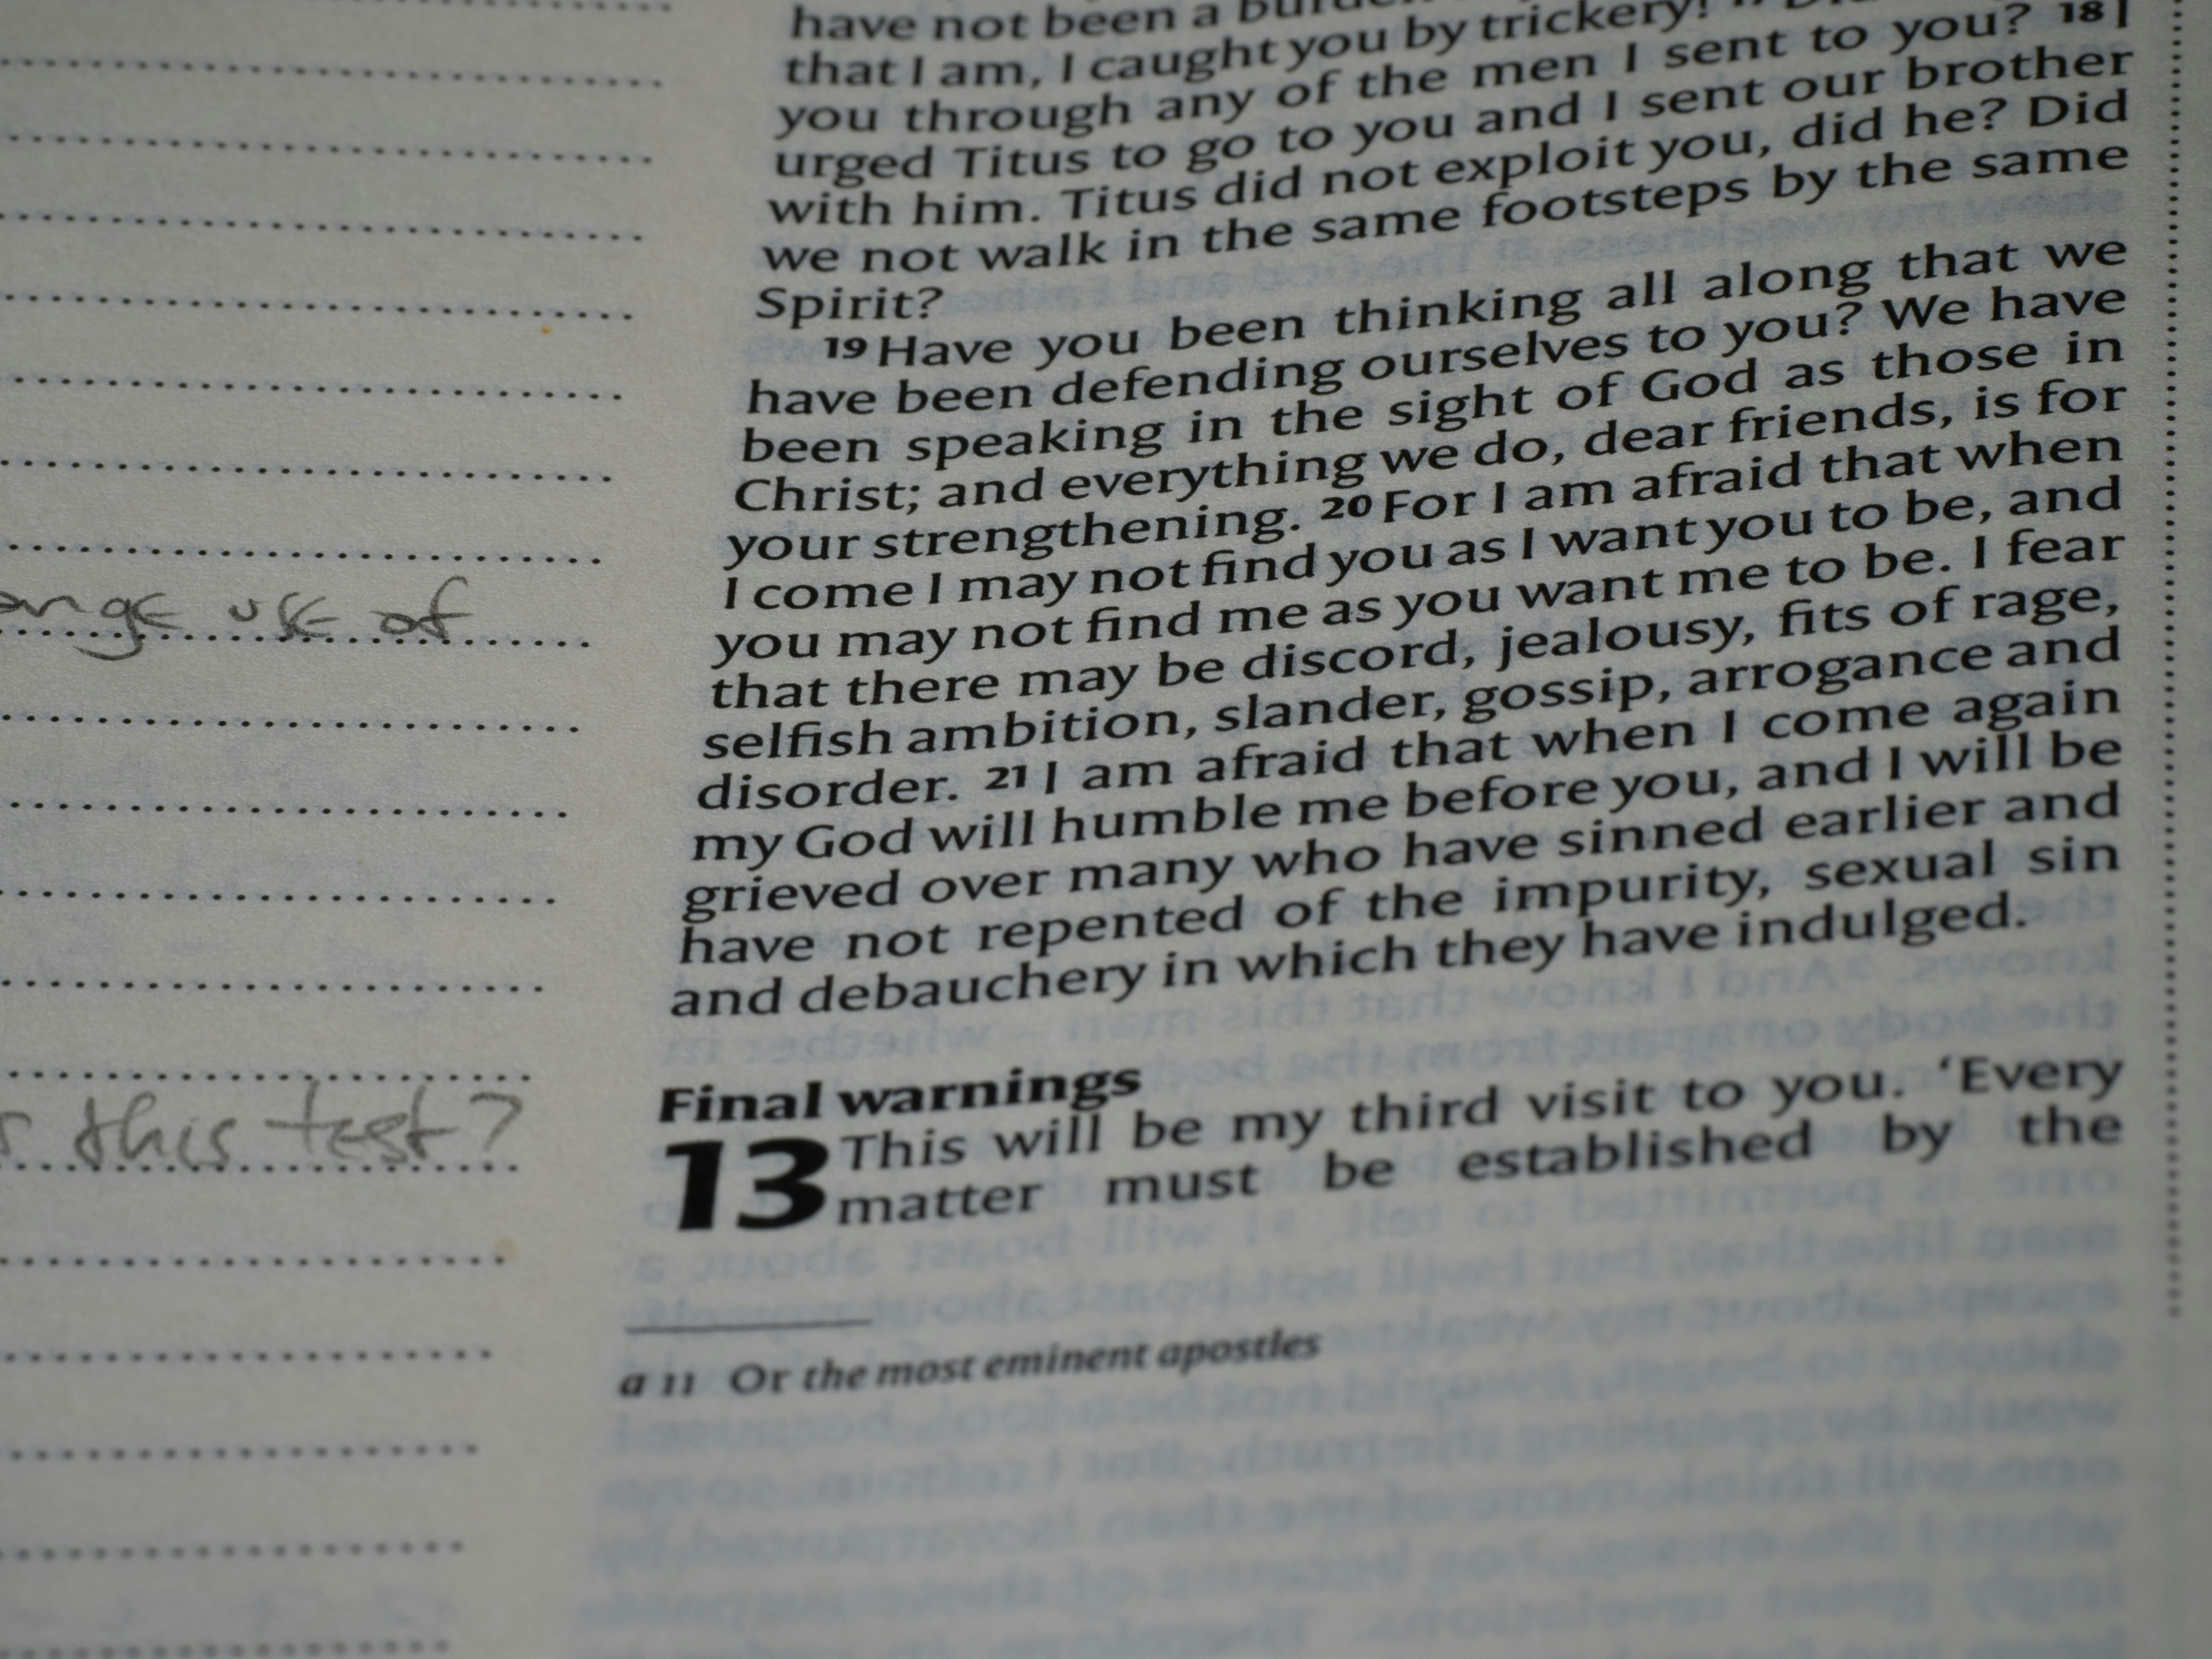 have not been a
that I am, I caught you by trickery! 17
you through any of the men I sent to you? 18 I
urged Titus to go to you and I sent our brother
with him. Titus did not exploit you, did he? Did
we not walk in the same footsteps by the same
Spirit?
19 Have you been thinking all along that we
have been defending ourselves to you? We have
been speaking in the sight of God as those in
Christ; and everything we do, dear friends, is for
your strengthening. 20 For I am afraid that when
I come I may not find you as I want you to be, and
you may not find me as you want me to be. I fear
that there may be discord, jealousy, fits of rage,
selfish ambition, slander, gossip, arrogance and
disorder. 21 I am afraid that when I come again
my God will humble me before you, and I will be
grieved over many who have sinned earlier and
have not repented of the impurity, sexual sin
and debauchery in which they have indulged.
Final warnings
13 This will be my third visit to you. ‘Every
matter must be established by the
a 11 Or the most eminent apostles
use of
this test?